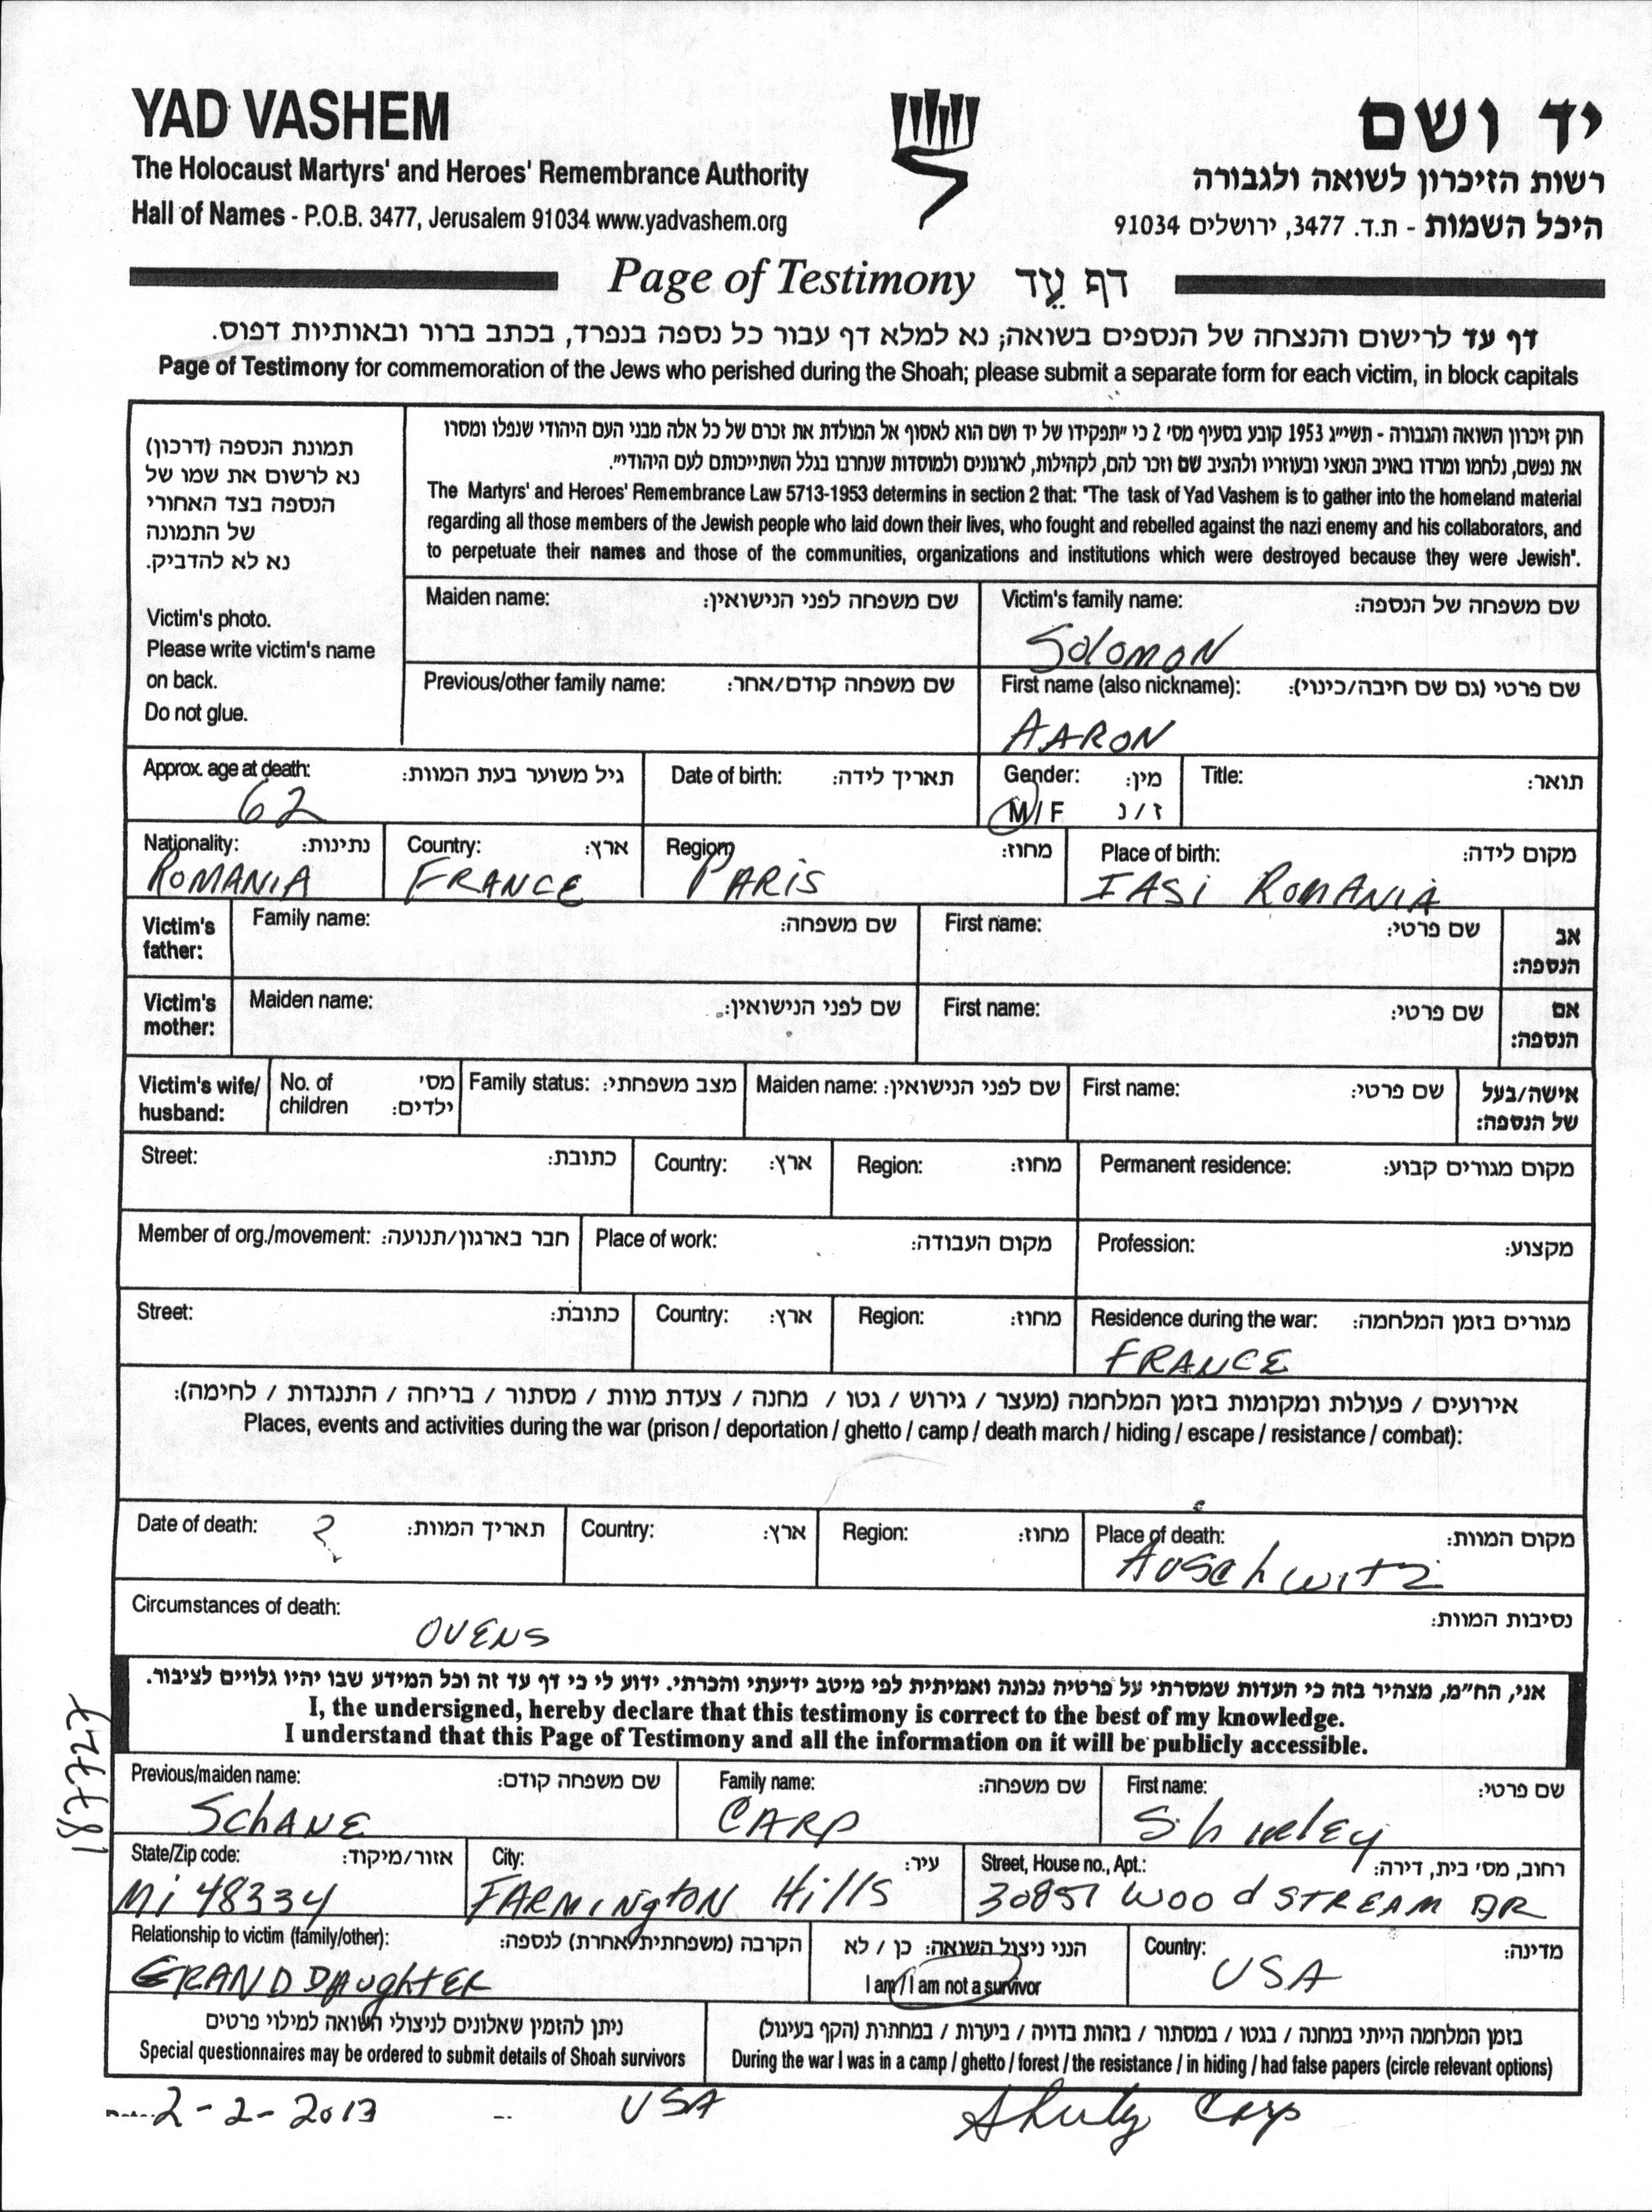 YAD VASHEM
The Holocaust Martyrs' and Heroes' Remembrance Authority
Hall of Names - P.O.B. 3477, Jerusalem 91034 www.yadvashem.org
יד ושם
רשות הזיכרון לשואה ולגבורה
היכל השמות - ת.ד. 3477, ירושלים 91034
Page of Testimony דף עֵד
דף עד לרישום והנצחה של הנספים בשואה; נא למלא דף עבור כל נספה בנפרד, בכתב ברור ובאותיות דפוס.
Page of Testimony for commemoration of the Jews who perished during the Shoah; please submit a separate form for each victim, in block capitals
תמונת הנספה (דרכון)
נא לרשום את שמו של
הנספה בצד האחורי
של התמונה
נא לא להדביק.
Victim's photo.
Please write victim's name
on back.
Do not glue.
חוק זיכרון השואה והגבורה - תשי״ג 1953 קובע בסעיף מס׳ 2 כי ״תפקידו של יד ושם הוא לאסוף אל המולדת את זכרם של כל אלה מבני העם היהודי שנפלו ומסרו
את נפשם, נלחמו ומרדו באויב הנאצי ובעוזריו ולהציב שם וזכר להם, לקהילות, לארגונים ולמוסדות שנחרבו בגלל השתייכותם לעם היהודי״.
The Martyrs' and Heroes' Remembrance Law 5713-1953 determins in section 2 that: "The task of Yad Vashem is to gather into the homeland material
regarding all those members of the Jewish people who laid down their lives, who fought and rebelled against the nazi enemy and his collaborators, and
to perpetuate their names and those of the communities, organizations and institutions which were destroyed because they were Jewish".
Maiden name: שם משפחה לפני הנישואין:
Victim's family name: שם משפחה של הנספה:
Solomon
Previous/other family name: שם משפחה קודם/אחר:
First name (also nickname): שם פרטי (גם שם חיבה/כינוי):
AARON
Approx. age at death: גיל משוער בעת המוות:
62
Date of birth: תאריך לידה:
Gender: מין:
M/F ז/נ
Title: תואר:
Nationality: נתינות:
ROMANIA
Country: ארץ:
FRANCE
Region: מחוז:
PARIS
Place of birth: מקום לידה:
IASI ROMANIA
Victim's father:
Family name: שם משפחה:
First name: שם פרטי:
אב הנספה:
Victim's mother:
Maiden name: שם לפני הנישואין:
First name: שם פרטי:
אם הנספה:
Victim's wife/ husband:
No. of children מס׳ ילדים:
Family status: מצב משפחתי:
Maiden name: שם לפני הנישואין:
First name: שם פרטי:
אישה/בעל של הנספה:
Street: כתובת:
Country: ארץ:
Region: מחוז:
Permanent residence: מקום מגורים קבוע:
Member of org./movement: חבר בארגון/תנועה:
Place of work: מקום העבודה:
Profession: מקצוע:
Street: כתובת:
Country: ארץ:
Region: מחוז:
Residence during the war: מגורים בזמן המלחמה:
FRANCE
אירועים / פעולות ומקומות בזמן המלחמה (מעצר / גירוש / גטו / מחנה / צעדת מוות / מסתור / בריחה / התנגדות / לחימה):
Places, events and activities during the war (prison / deportation / ghetto / camp / death march / hiding / escape / resistance / combat):
Date of death: תאריך המוות:
?
Country: ארץ:
Region: מחוז:
Place of death: מקום המוות:
Auschwitz
Circumstances of death: נסיבות המוות:
OVENS
אני, הח״מ, מצהיר בזה כי העדות שמסרתי על פרטיה נכונה ואמיתית לפי מיטב ידיעתי והכרתי. ידוע לי כי דף עד זה וכל המידע שבו יהיו גלויים לציבור.
I, the undersigned, hereby declare that this testimony is correct to the best of my knowledge.
I understand that this Page of Testimony and all the information on it will be publicly accessible.
Previous/maiden name: שם משפחה קודם:
SCHANE
Family name: שם משפחה:
CARP
First name: שם פרטי:
Shirley
State/Zip code: אזור/מיקוד:
Mi 48334
City: עיר:
FARMINgtON Hills
Street, House no., Apt.: רחוב, מס׳ בית, דירה:
30851 WOOdSTREAM DR
Relationship to victim (family/other): הקרבה (משפחתית/אחרת) לנספה:
GRANDDAughtER
הנני ניצול השואה: כן / לא
I am/I am not a survivor
Country: מדינה:
USA
ניתן להזמין שאלונים לניצולי השואה למילוי פרטים
Special questionnaires may be ordered to submit details of Shoah survivors
בזמן המלחמה הייתי במחנה / בגטו / במסתור / בזהות בדויה / ביערות / במחתרת (הקף בעיגול)
During the war I was in a camp / ghetto / forest / the resistance / in hiding / had false papers (circle relevant options)
2-2-2013
USA
Shirley Carp